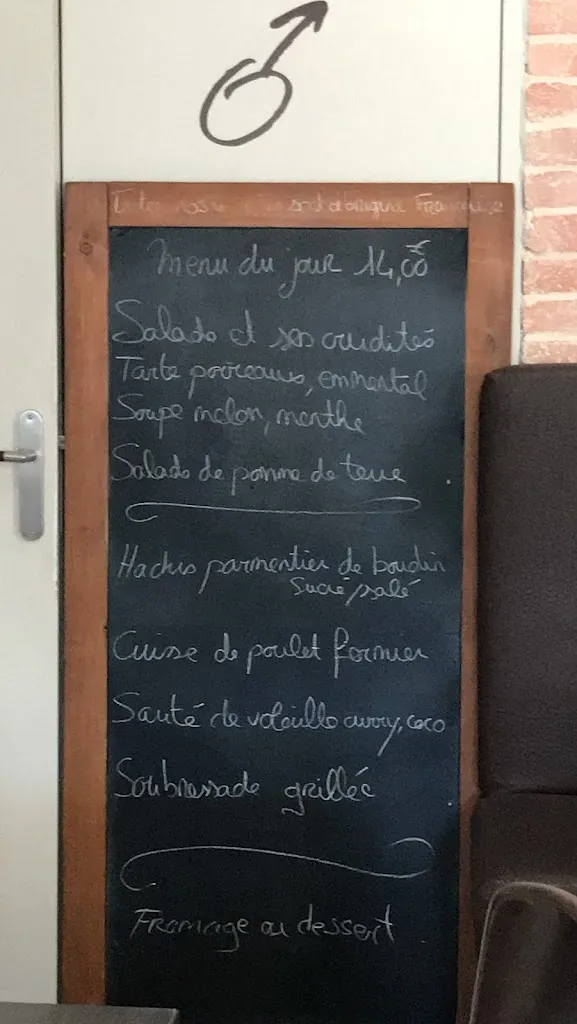 sont d'origine Française
Menu du jour 14,00
Salade et ses crudités
Tarte poireaux, emmental
Soupe melon, menthe
Salade de pomme de terre
Hachis parmentier de boudin
Sucré/salé
Cuisse de poulet fermier
Sauté de volaille curry, coco
Soubressade grillée
Fromage ou dessert